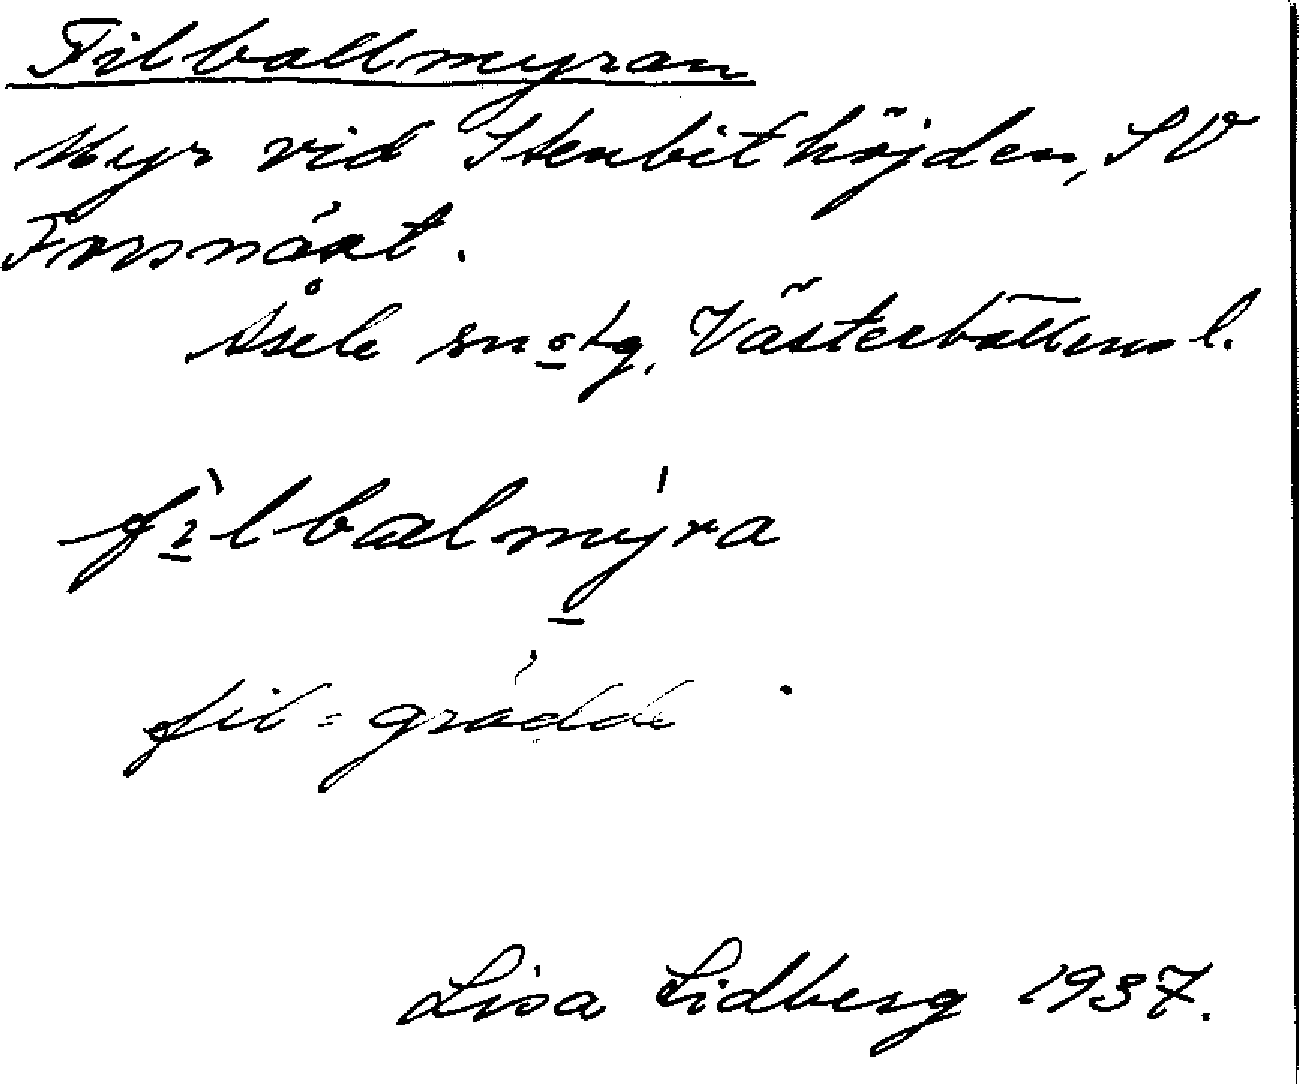 Filballmyran
Myr vid Stenbithöjden, SV
Forsnäst.
Åsele sn o tg, Västerbottens l.
fìlbalmýra
fil = grädde
Lisa Lidberg 1937.